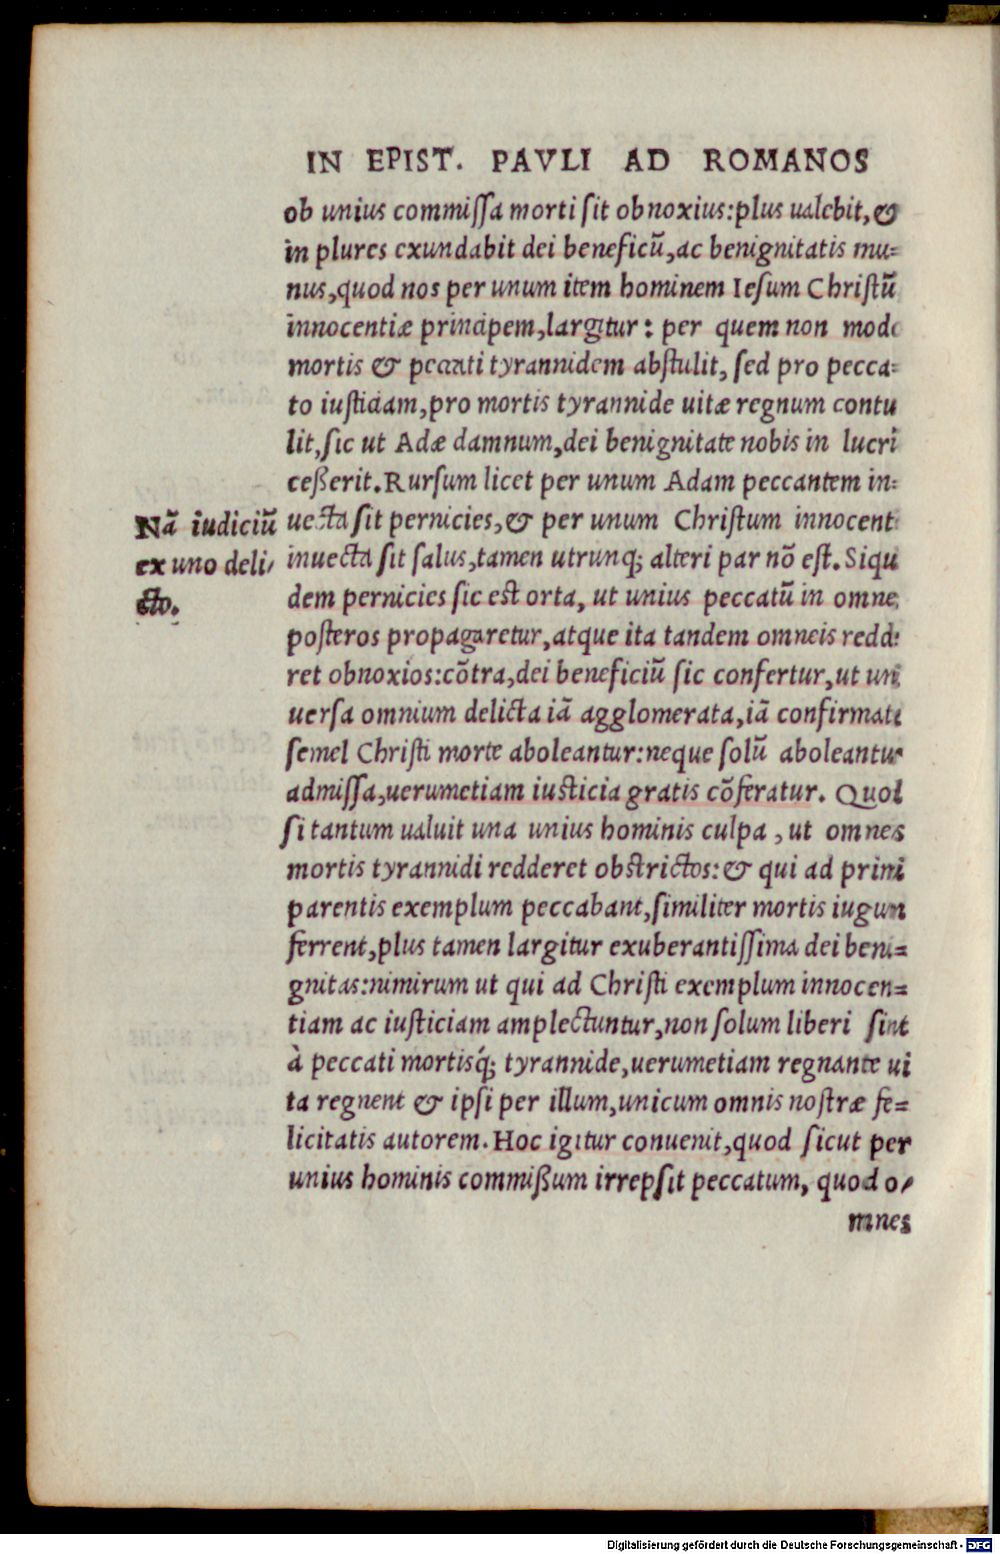 IN EPIST. PAVLI AD ROMANOS
ob unius commiſſa morti ſit obnoxius:plus ualebit,&
in plures exundabit dei beneficũ,ac benignitatis mu=
nus,quod nos per unum item hominem Ieſum Chriſtũ
innocentiæ principem,largitur: per quem non modo
mortis & peccati tyrannidem abſtulit, ſed pro pecca=
to iuſticiam,pro mortis tyrannide uitæ regnum contu
lit,ſic ut Adæ damnum,dei benignitate nobis in lucri
ceßerit.Rurſum licet per unum Adam peccantem in=
Nã iudiciũ
ex uno deli/
cto.
uecta ſit pernicies,& per unum Chriſtum innocent
inuecta ſit ſalus,tamen utrunq; alteri par nõ eſt. Siqu
dem pernicies ſic eſt orta, ut unius peccatũ in omne
poſteros propagaretur,atque ita tandem omneis redd
ret obnoxios:cõtra,dei beneficiũ ſic confertur,ut uni
uerſa omnium delicta iã agglomerata,iã confirmata
ſemel Chriſti morte aboleantur:neque ſolũ aboleantur
admiſſa,uerumetiam iuſticia gratis cõferatur. Quod
ſi tantum ualuit una unius hominis culpa , ut omnes
mortis tyrannidi redderet obſtrictos:& qui ad primi
parentis exemplum peccabant,ſimiliter mortis iugum
ferrent,plus tamen largitur exuberantiſſima dei beni=
gnitas:nimirum ut qui ad Chriſti exemplum innocen=
tiam ac iuſticiam amplectuntur,non ſolum liberi ſint
à peccati mortisq́; tyrannide,uerumetiam regnante ui
ta regnent & ipſi per illum,unicum omnis noſtræ fe=
licitatis autorem.Hoc igitur conuenit,quod ſicut per
unius hominis commißum irrepſit peccatum, quod o/
mnes
Digitalisierung gefördert durch die Deutsche Forschungsgemeinschaft - DFG